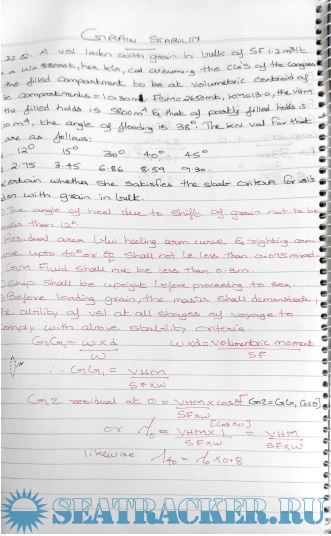 GRAIN STABILITY
22 Q. A vsl laden with grain in bulk of SF 1.2 m³/t
a W= 88000t, has KG, cal assuming the CG's of the cargoes
the filled compartment to be at volumetric centroid of
compartments = 10.30m. FSM= 2650mt, KM=13.0, the VHM
the filled holds is 5800m⁴ & that of partly filled holds is
00m⁴, the angle of flooding is 38°. The KN val for that
are as follows:
12° 15° 30° 40° 45°
2.75 3.45 6.86 8.59 9.30
certain whether she satisfies the stab criteria for vsls
den with grain in bulk.
The angle of heel due to shift of grain not to be
than 12°.
Residual area b/w heeling arm curve & righting arm
curve upto 40° or θf shall not be less than 0.075 mrad.
GM Fluid shall not be less than 0.3m.
Ship shall be upright before proceeding to sea.
Before loading grain, the master shall demonstrate,
the ability of vsl at all stages of voyage to
comply with above stability criteria.
G₁G₁ = w x d / W w x d = volumetric moment / SF
∴ GG₁ = VHM / SF x W
GZ residual at θ = VHM x cosθ / SF x W [GZ = GG₁ Cosθ]
or λ₀ = VHM x 1 / SF x W [Cos 0 = 1] = VHM / SF x W
likewise λ₄₀ = λ₀ x 0.8
SEATRACKER.RU